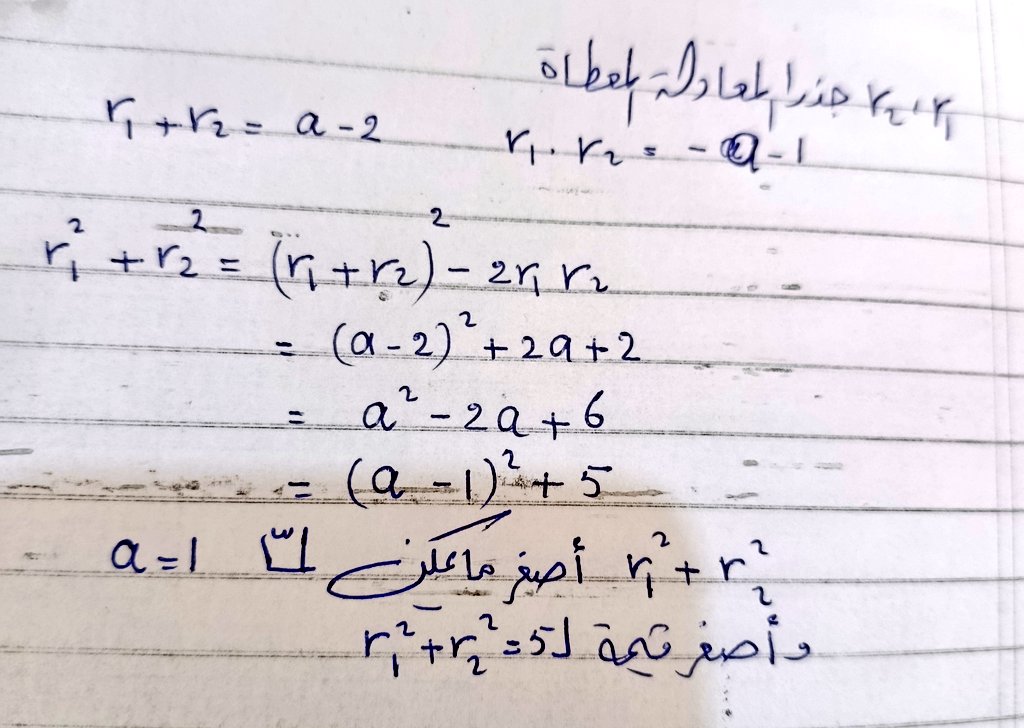 r₁ ، r₂ جذرا المعادلة المعطاة
r₁ + r₂ = a - 2    r₁ . r₂ = - a - 1
r₁² + r₂² = (r₁ + r₂)² - 2r₁ r₂
= (a - 2)² + 2a + 2
= a² - 2a + 6
= (a - 1)² + 5
r₁² + r₂² أصغر ما يمكن لمّا a = 1
و أصغر قيمة لـ r₁² + r₂² = 5